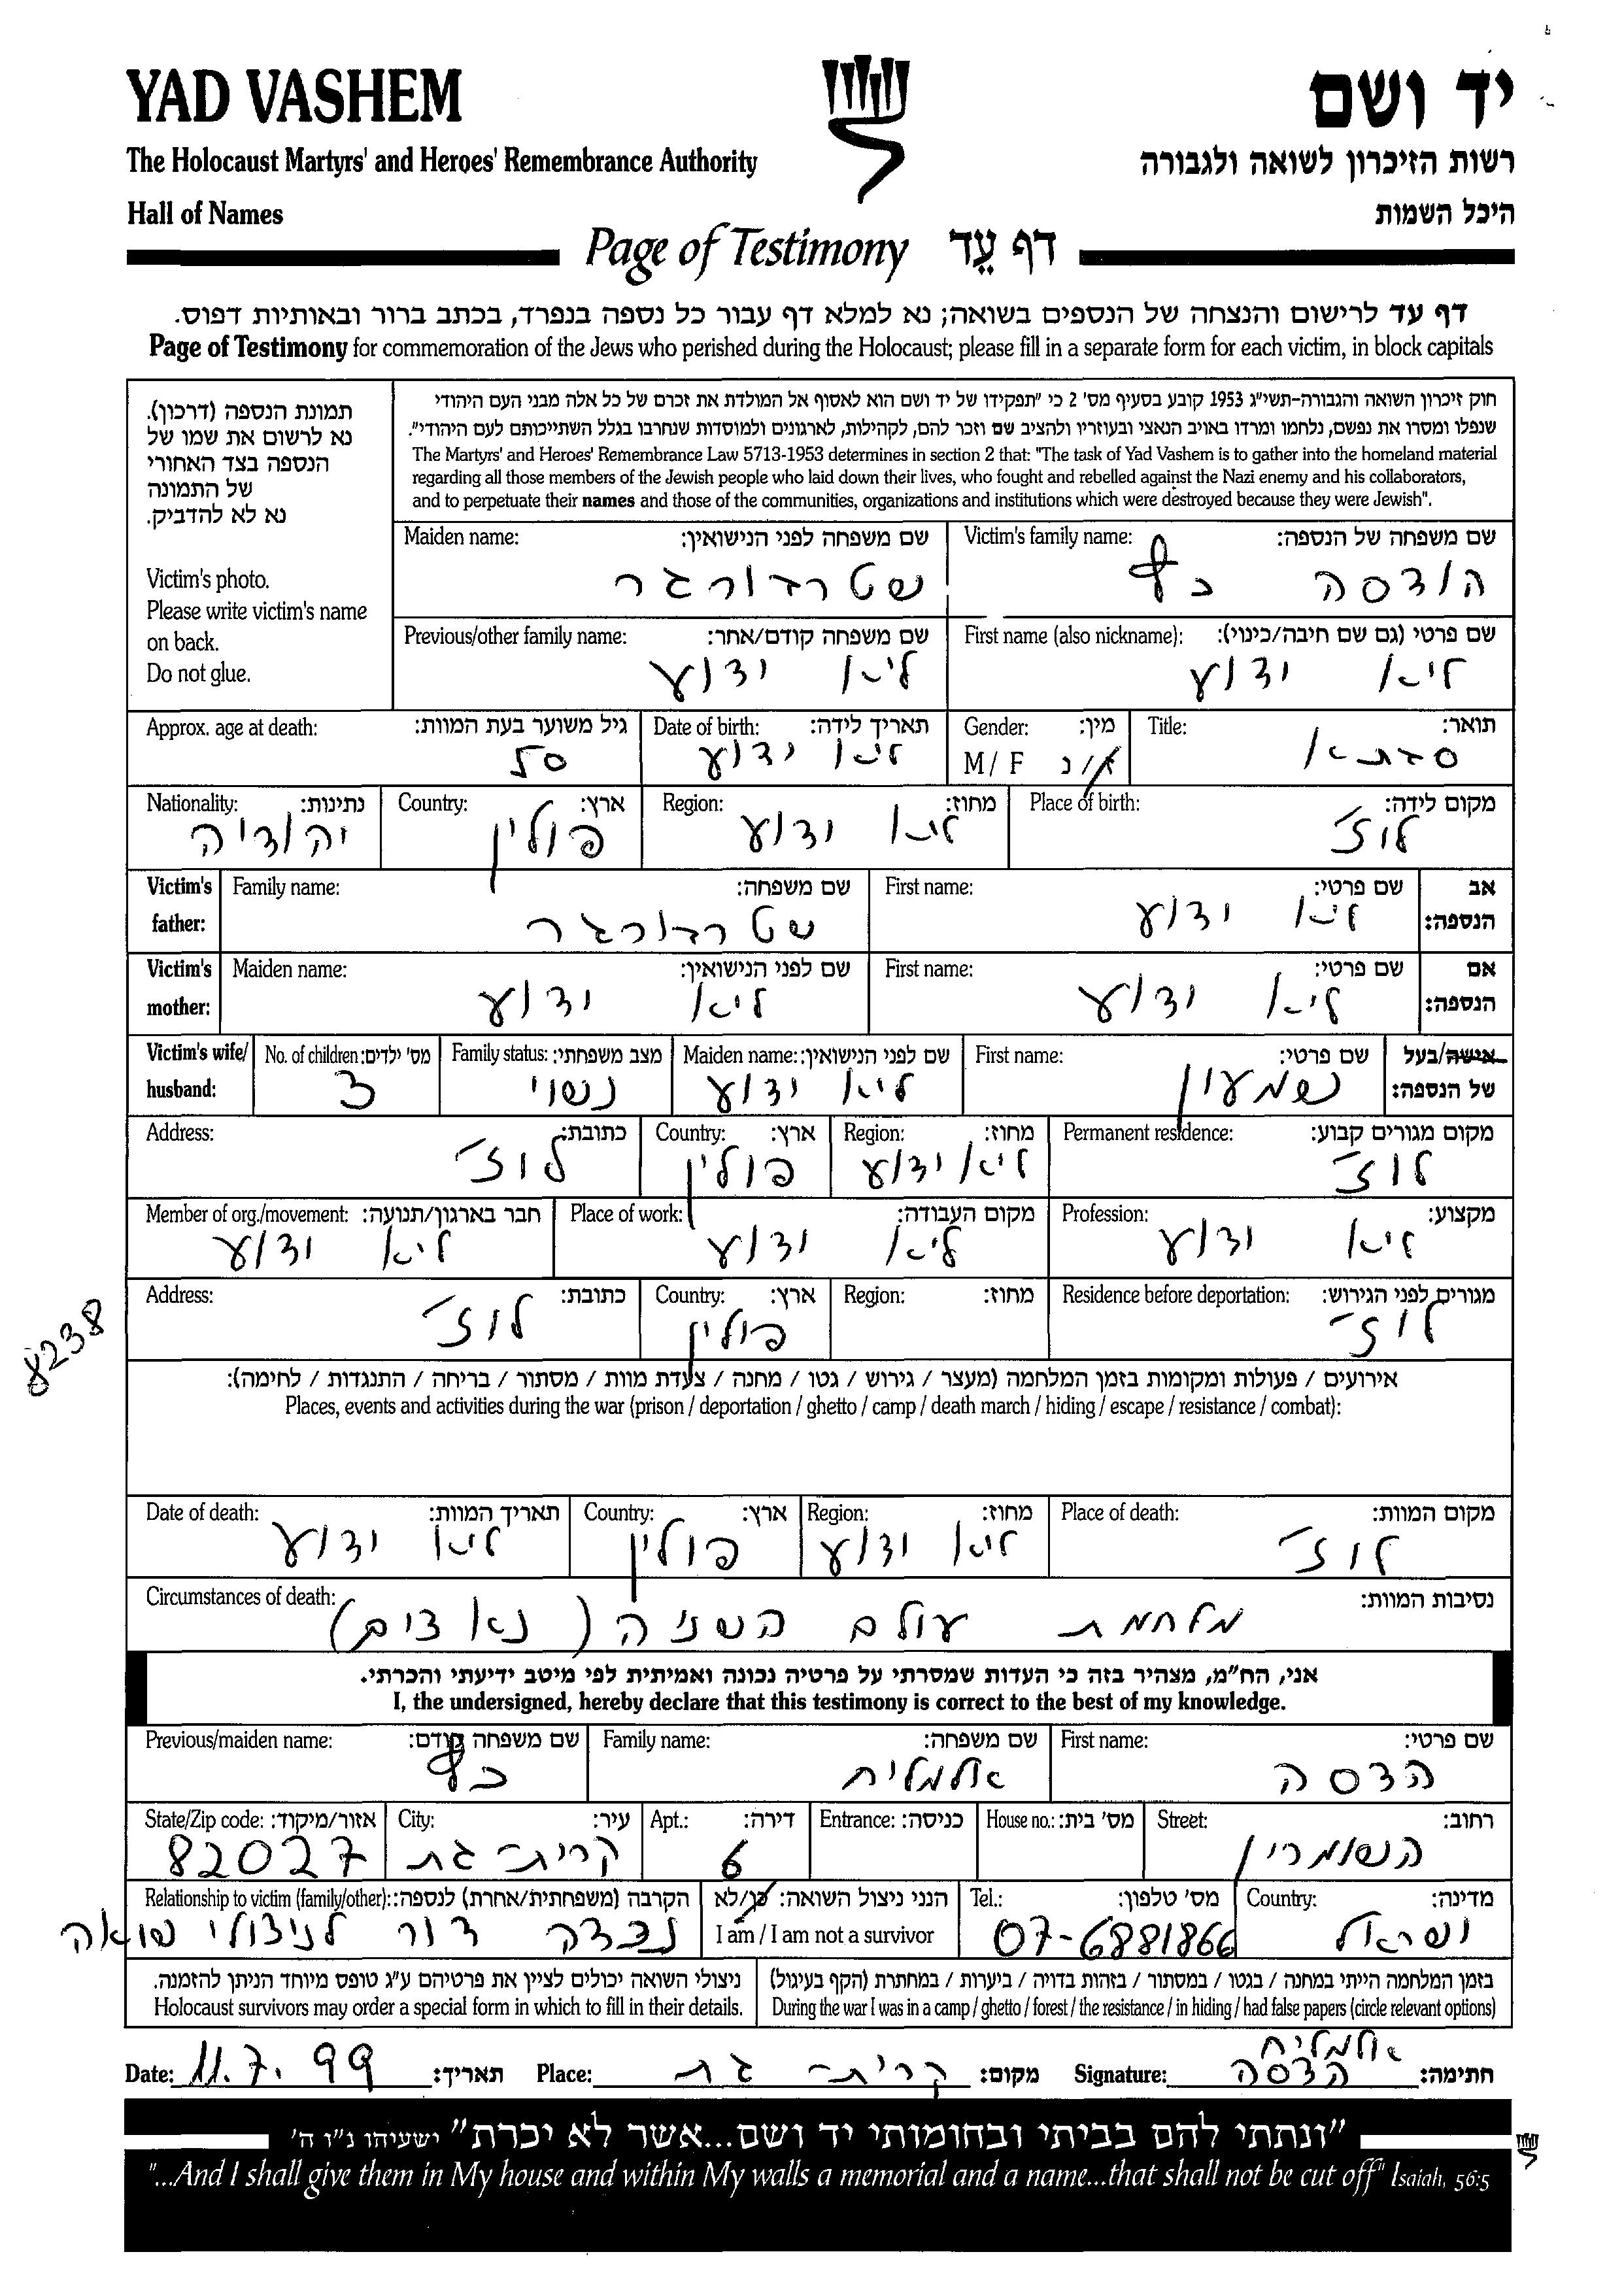 YAD VASHEM
יד ושם
The Holocaust Martyrs' and Heroes' Remembrance Authority
רשות הזיכרון לשואה ולגבורה
Hall of Names
היכל השמות
Page of Testimony דף עֵד
דף עד לרישום והנצחה של הנספים בשואה; נא למלא דף עבור כל נספה בנפרד, בכתב ברור ובאותיות דפוס.
Page of Testimony for commemoration of the Jews who perished during the Holocaust; please fill in a separate form for each victim, in block capitals
תמונת הנספה (דרכון).
נא לרשום את שמו של
הנספה בצד האחורי
של התמונה
נא לא להדביק.
Victim's photo.
Please write victim's name
on back.
Do not glue.
חוק זיכרון השואה והגבורה-תשי"ג 1953 קובע בסעיף מס' 2 כי "תפקידו של יד ושם הוא לאסוף אל המולדת את זכרם של כל אלה מבני העם היהודי
שנפלו ומסרו את נפשם, נלחמו ומרדו באויב הנאצי ובעוזריו ולהציב שם וזכר להם, לקהילות, לארגונים ולמוסדות שנחרבו בגלל השתייכותם לעם היהודי".
The Martyrs' and Heroes' Remembrance Law 5713-1953 determines in section 2 that: "The task of Yad Vashem is to gather into the homeland material
regarding all those members of the Jewish people who laid down their lives, who fought and rebelled against the Nazi enemy and his collaborators,
and to perpetuate their names and those of the communities, organizations and institutions which were destroyed because they were Jewish".
Victim's family name: שם משפחה של הנספה:
הודסה כץ
Maiden name: שם משפחה לפני הנישואין:
שטרזורגר
First name (also nickname): שם פרטי (גם שם חיבה/כינוי):
לא ידוע
Previous/other family name: שם משפחה קודם/אחר:
לא ידוע
Title: תואר:
סבתא
Gender: מין:
M / F ז/נ
Date of birth: תאריך לידה:
לא ידוע
Approx. age at death: גיל משוער בעת המוות:
50
Place of birth: מקום לידה:
לודז'
Region: מחוז:
לא ידוע
Country: ארץ:
פולין
Nationality: נתינות:
יהודיה
Victim's father: אב הנספה:
First name: שם פרטי:
לא ידוע
Family name: שם משפחה:
שטרזורגר
Victim's mother: אם הנספה:
First name: שם פרטי:
לא ידוע
Maiden name: שם לפני הנישואין:
לא ידוע
Victim's wife/husband: אישה/בעל של הנספה:
First name: שם פרטי:
שמעון
Maiden name: שם לפני הנישואין:
לא ידוע
Family status: מצב משפחתי:
נשוי
No. of children: מס' ילדים:
3
Permanent residence: מקום מגורים קבוע:
לודז'
Region: מחוז:
לא ידוע
Country: ארץ:
פולין
Address: כתובת:
לודז'
Profession: מקצוע:
לא ידוע
Place of work: מקום העבודה:
לא ידוע
Member of org./movement: חבר בארגון/תנועה:
לא ידוע
Residence before deportation: מגורים לפני הגירוש:
לודז'
Region: מחוז:
Country: ארץ:
פולין
Address: כתובת:
לודז'
8238
אירועים / פעולות ומקומות בזמן המלחמה (מעצר / גירוש / גטו / מחנה / צעדת מוות / מסתור / בריחה / התנגדות / לחימה):
Places, events and activities during the war (prison / deportation / ghetto / camp / death march / hiding / escape / resistance / combat):
Place of death: מקום המוות:
לודז'
Region: מחוז:
לא ידוע
Country: ארץ:
פולין
Date of death: תאריך המוות:
לא ידוע
Circumstances of death: נסיבות המוות:
מלחמת עולם השניה (נאצים)
אני, הח"מ, מצהיר בזה כי העדות שמסרתי על פרטיה נכונה ואמיתית לפי מיטב ידיעתי והכרתי.
I, the undersigned, hereby declare that this testimony is correct to the best of my knowledge.
First name: שם פרטי:
הדסה
Family name: שם משפחה:
אלמליח
Previous/maiden name: שם משפחה קודם:
כץ
Street: רחוב:
השומרון
House no.: מס' בית:
Entrance: כניסה:
Apt.: דירה:
6
City: עיר:
קרית-גת
State/Zip code: אזור/מיקוד:
82027
Country: מדינה:
ישראל
Tel.: מס' טלפון:
07-6881866
הנני ניצול השואה: כן/לא
I am / I am not a survivor
Relationship to victim (family/other): הקרבה (משפחתית/אחרת) לנספה:
נכדה דור לניצולי שואה
בזמן המלחמה הייתי במחנה / בגטו / במסתור / בזהות בדויה / ביערות / במחתרת (הקף בעיגול)
During the war I was in a camp / ghetto / forest / the resistance / in hiding / had false papers (circle relevant options)
ניצולי השואה יכולים לציין את פרטיהם ע"ג טופס מיוחד הניתן להזמנה.
Holocaust survivors may order a special form in which to fill in their details.
Signature: אלמליח הדסה חתימה:
Place: קרית-גת מקום:
Date: 11.7.99 תאריך:
"ונתתי להם בביתי ובחומותי יד ושם...אשר לא יכרת" ישעיהו נ"ו ה'
"...And I shall give them in My house and within My walls a memorial and a name...that shall not be cut off" Isaiah, 56:5